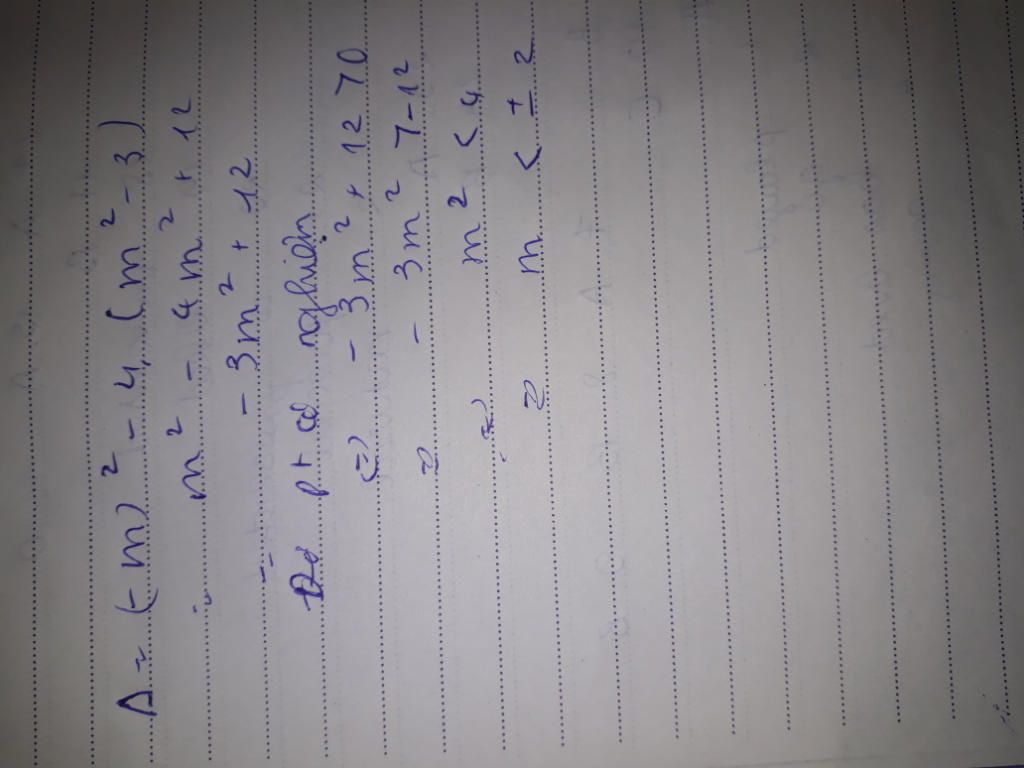 Δ = (-m)² - 4. (m² - 3)
= m² - 4m² + 12
= - 3m² + 12
Để pt có nghiệm
<=> - 3m² + 12 > 0
=> - 3m² > -12
=> m² < 4
=> m < ± 2